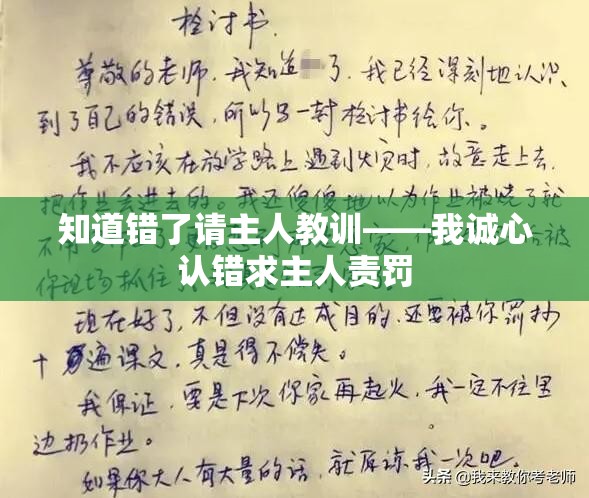 检讨书.
尊敬的老师,我知道 了,我已经深刻地认识
到了自己的错误,所以写一封检讨书给你。
我不应该在放学路上遇到火灾时,故意走上去,
把作业丢进去的。我还傻傻地以为作业被烧了就
知道错了请主人教训——我诚心
认错求主人责罚
你现场抓住
现在好了,不但没有达成目的,还要被你罚抄
十遍课文,真是得不偿失。
我保证,要是下次你家再起火,我一定不往里
边扔作业。
如果你大人有大量的话,就原谅我一次吧。
头条 @我来教你考老师